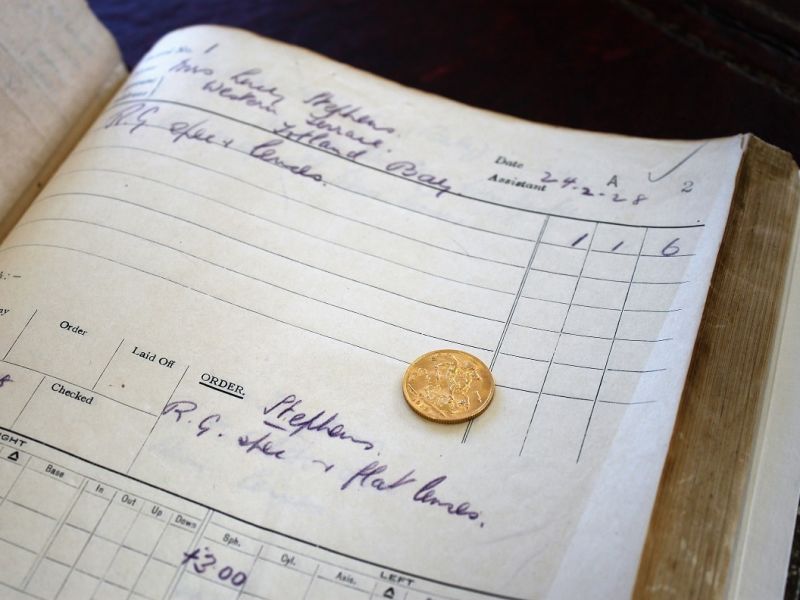 No. 1
Mrs Lucy Stephens.
Western Terrace.
Jetland Bay
R.G. spec + lenses.
Date 24-2-28
Assistant
A
2
1 1 6
Order
Laid Off
Checked
ORDER.
Stephens.
R.G. spec + flat lenses.
Base In Out Up Down
Sph. Cyl. Axis.
LEFT
+3.00